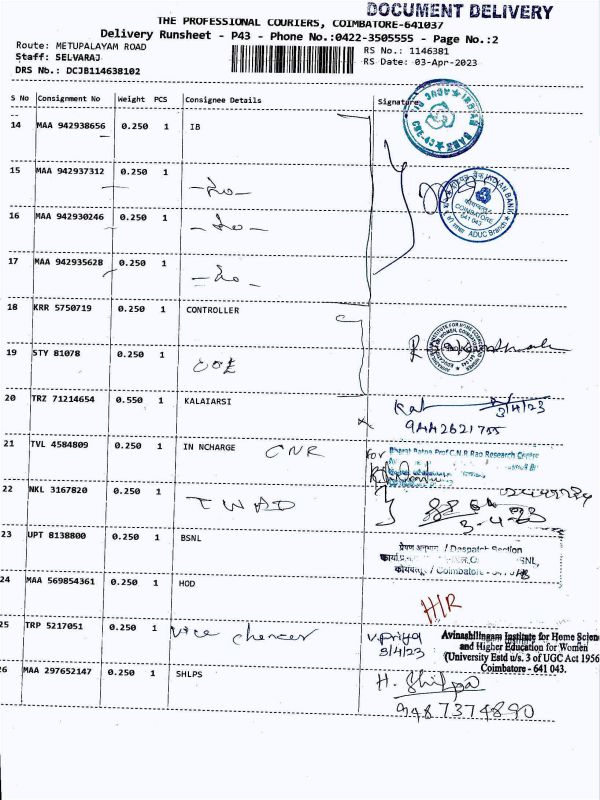 DOCUMENT DELIVERY
THE PROFESSIONAL COURIERS, COIMBATORE-641037
Delivery Runsheet - P43 - Phone No.:0422-3505555 - Page No.:2
Route: METUPALAYAM ROAD
RS No.: 1146381
Staff: SELVARAJ
RS Date: 03-Apr-2023
DRS No.: DCJB114638102
S No Consignment No Weight PCS Consignee Details Signature
14 MAA 942938656 0.250 1 IB
15 MAA 942937312 0.250 1
INDIAN BANK
COIMBATORE
641 043
ADUC Branch
16 MAA 942930246 0.250 1
17 MAA 942935628 0.250 1
18 KRR 5750719 0.250 1 CONTROLLER
19 STY 81078 0.250 1 COE
20 TRZ 71214654 0.550 1 KALAIARSI
3/4/23
21 TVL 4584809 0.250 1 IN NCHARGE CNR
for Bharat Ratna Prof C.N.R Rao Research Centre
22 NKL 3167820 0.250 1 TWAD
3-4-23
23 UPT 8138800 0.250 1 BSNL
प्रेषण अनुभाग / Despatch Section
BSNL,
कोयंबत्तूर / Coimbatore
24 MAA 569854361 0.250 1 HOD
H/R
25 TRP 5217051 0.250 1 Vice chencer
V. Priya
3/4/23
Avinashilingam Institute for Home Scien
and Higher Education for Women
(University Estd u/s. 3 of UGC Act 1956
Coimbatore - 641 043.
26 MAA 297652147 0.250 1 SHLPS
H. Shilpa
9487374890